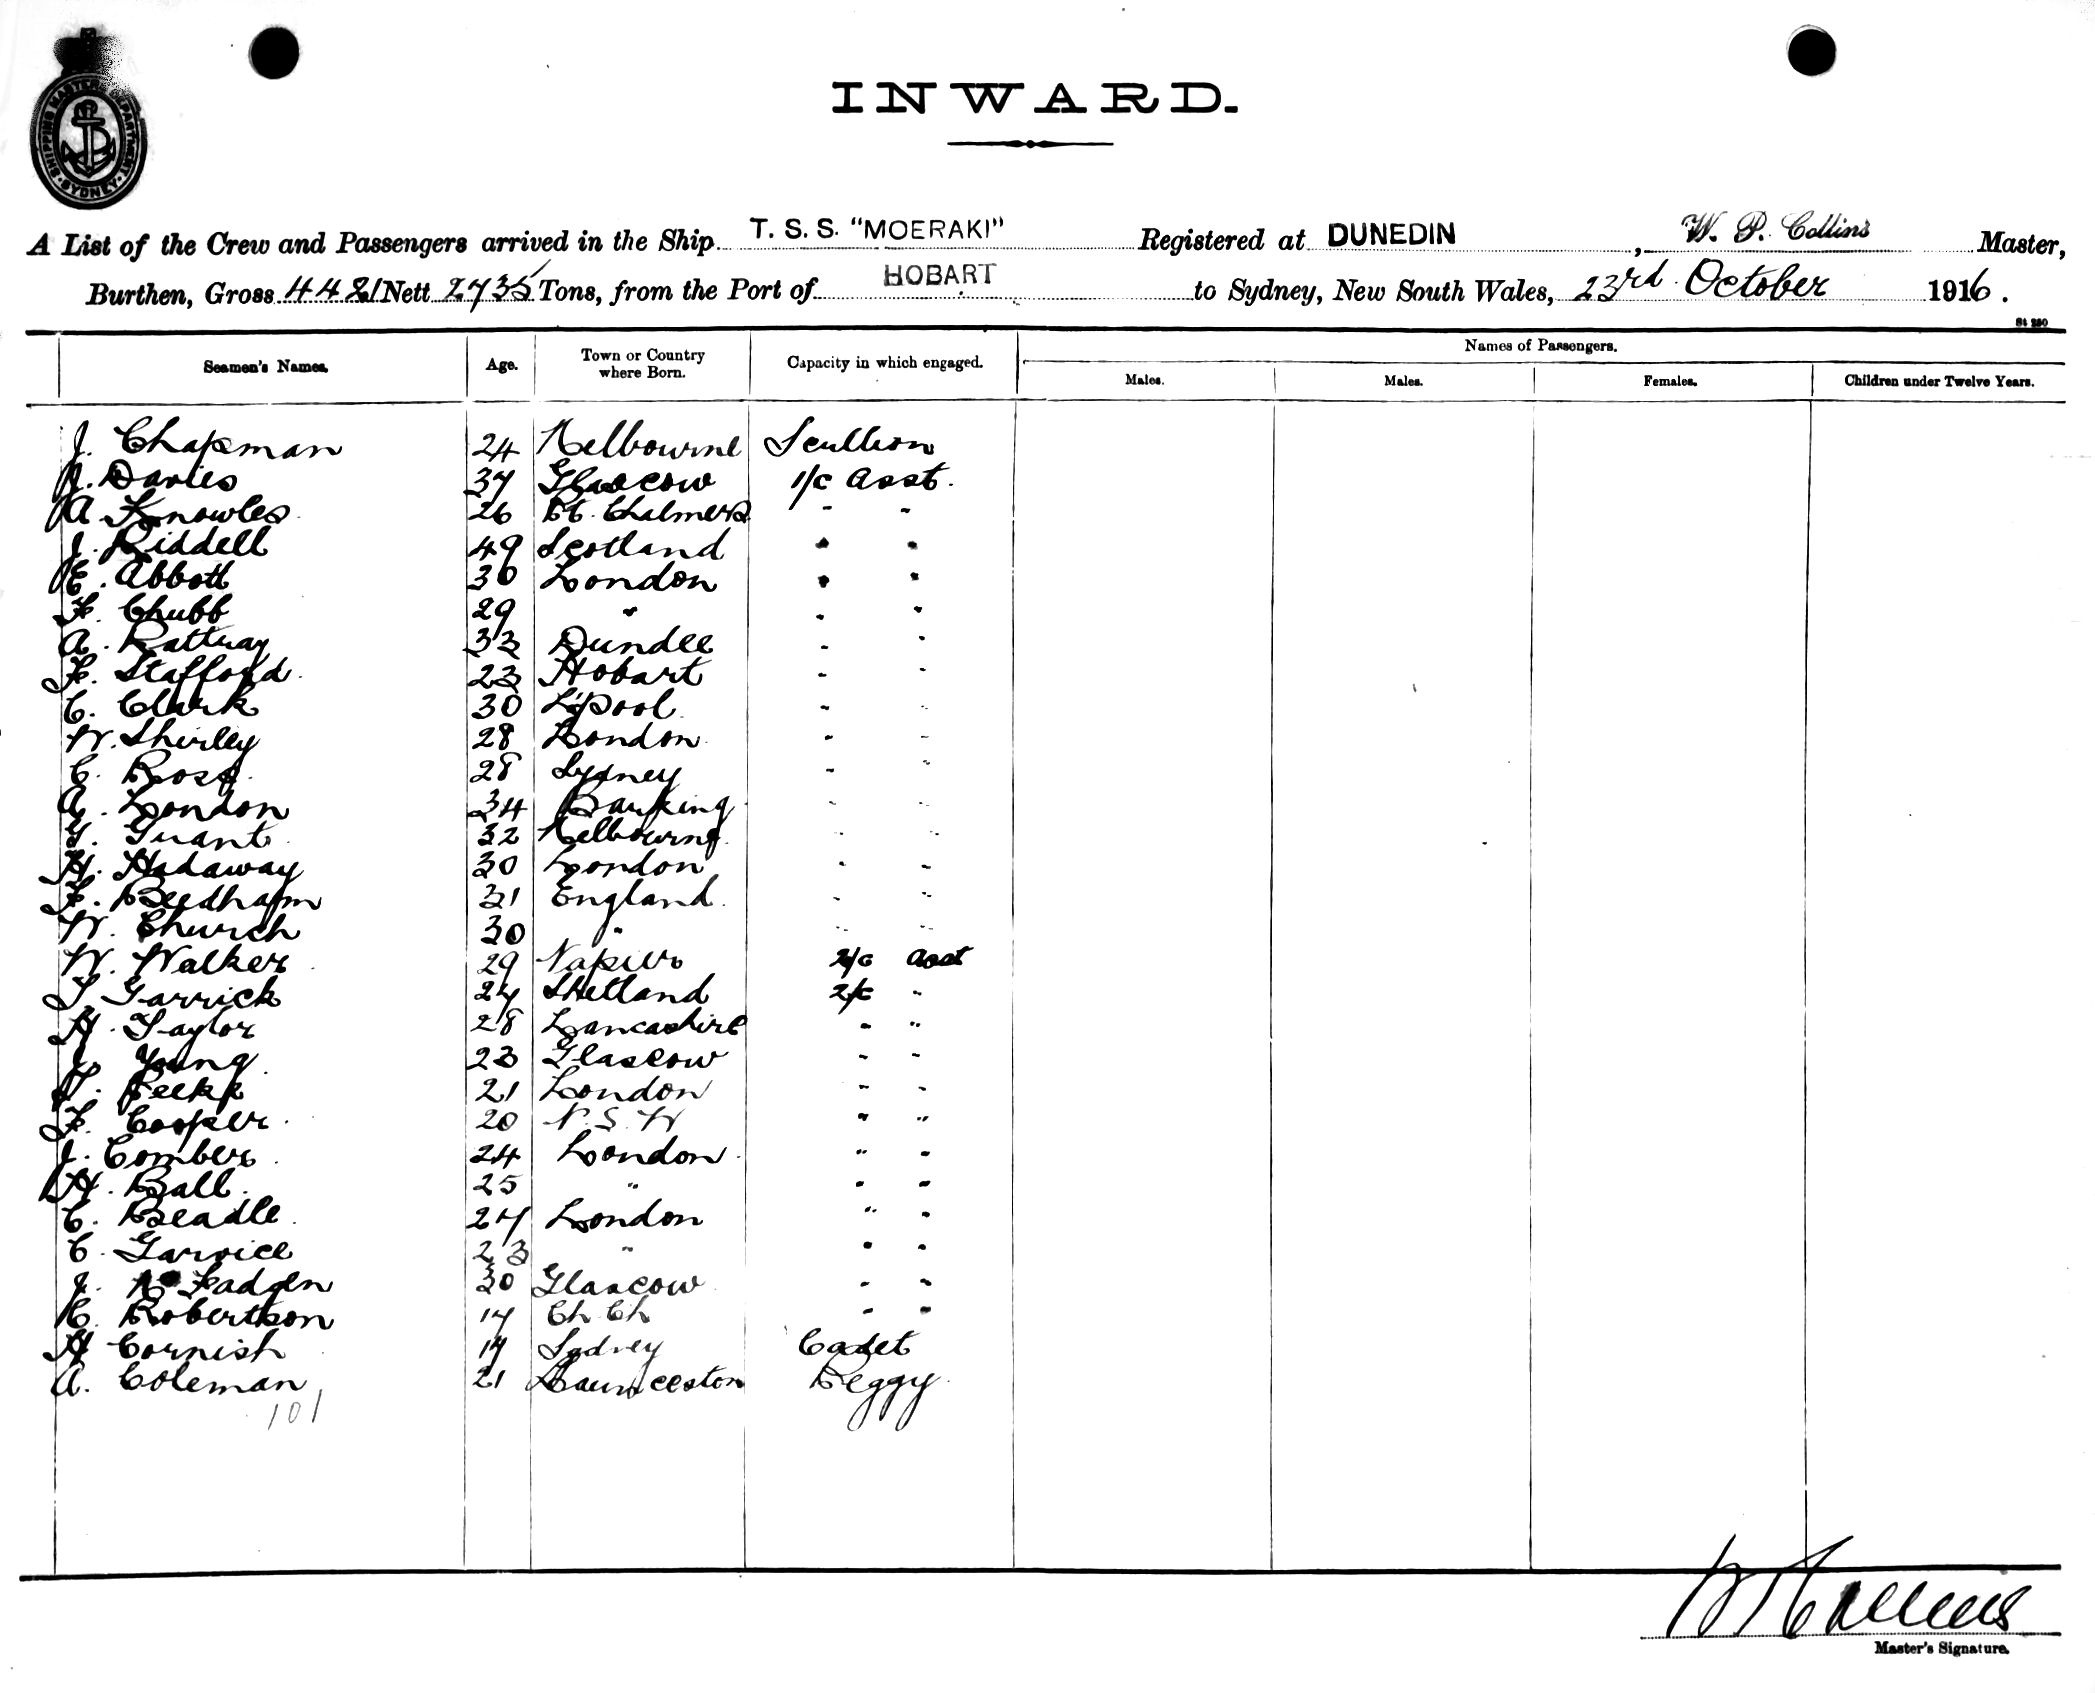 SHIPPING MASTERS DEPARTMENT · SYDNEY ·
INWARD.
A List of the Crew and Passengers arrived in the Ship T. S. S. "MOERAKI" Registered at DUNEDIN, W. P. Collins Master,
Burthen, Gross 4421 Nett 2735 Tons, from the Port of HOBART to Sydney, New South Wales, 23rd October 1916.
St 250
Seamen's Names. Age. Town or Country where Born. Capacity in which engaged. Names of Passengers.
Males. Males. Females. Children under Twelve Years.
J. Chapman 24 Melbourne Scullion
J. Davies 37 Glascow 1/c Asst.
A. Knowles 26 Pt. Chalmers " "
J. Riddell 49 Scotland " "
E. Abbott 30 London " "
F. Chubb 29 " " "
A. Rattray 33 Dundee " "
F. Stafford 23 Hobart " "
C. Clark 30 L'pool " "
W. Shirley 28 London " "
C. Ross 28 Sydney " "
A. London 34 Barking " "
G. Grant 32 Melbourne " "
H. Hadaway 30 London " "
F. Beedham 31 England " "
W. Church 30 " " "
W. Walker 29 Napier 2/c Asst
T. Garrick 27 Shetland 2/c "
H. Taylor 28 Lancashire " "
J. Young 23 Glascow " "
T. Peeke 21 London " "
F. Cooper 20 N. S. W " "
J. Comber 24 London " "
H. Ball 25 " " "
C. Beadle 27 London " "
C. Garvice 23 " " "
J. McFadgen 30 Glascow " "
C. Robertson 17 Ch Ch " "
H Cornish 17 Sydney Cadet
A. Coleman 21 Launceston Peggy
101
W P Collins
Master's Signature.